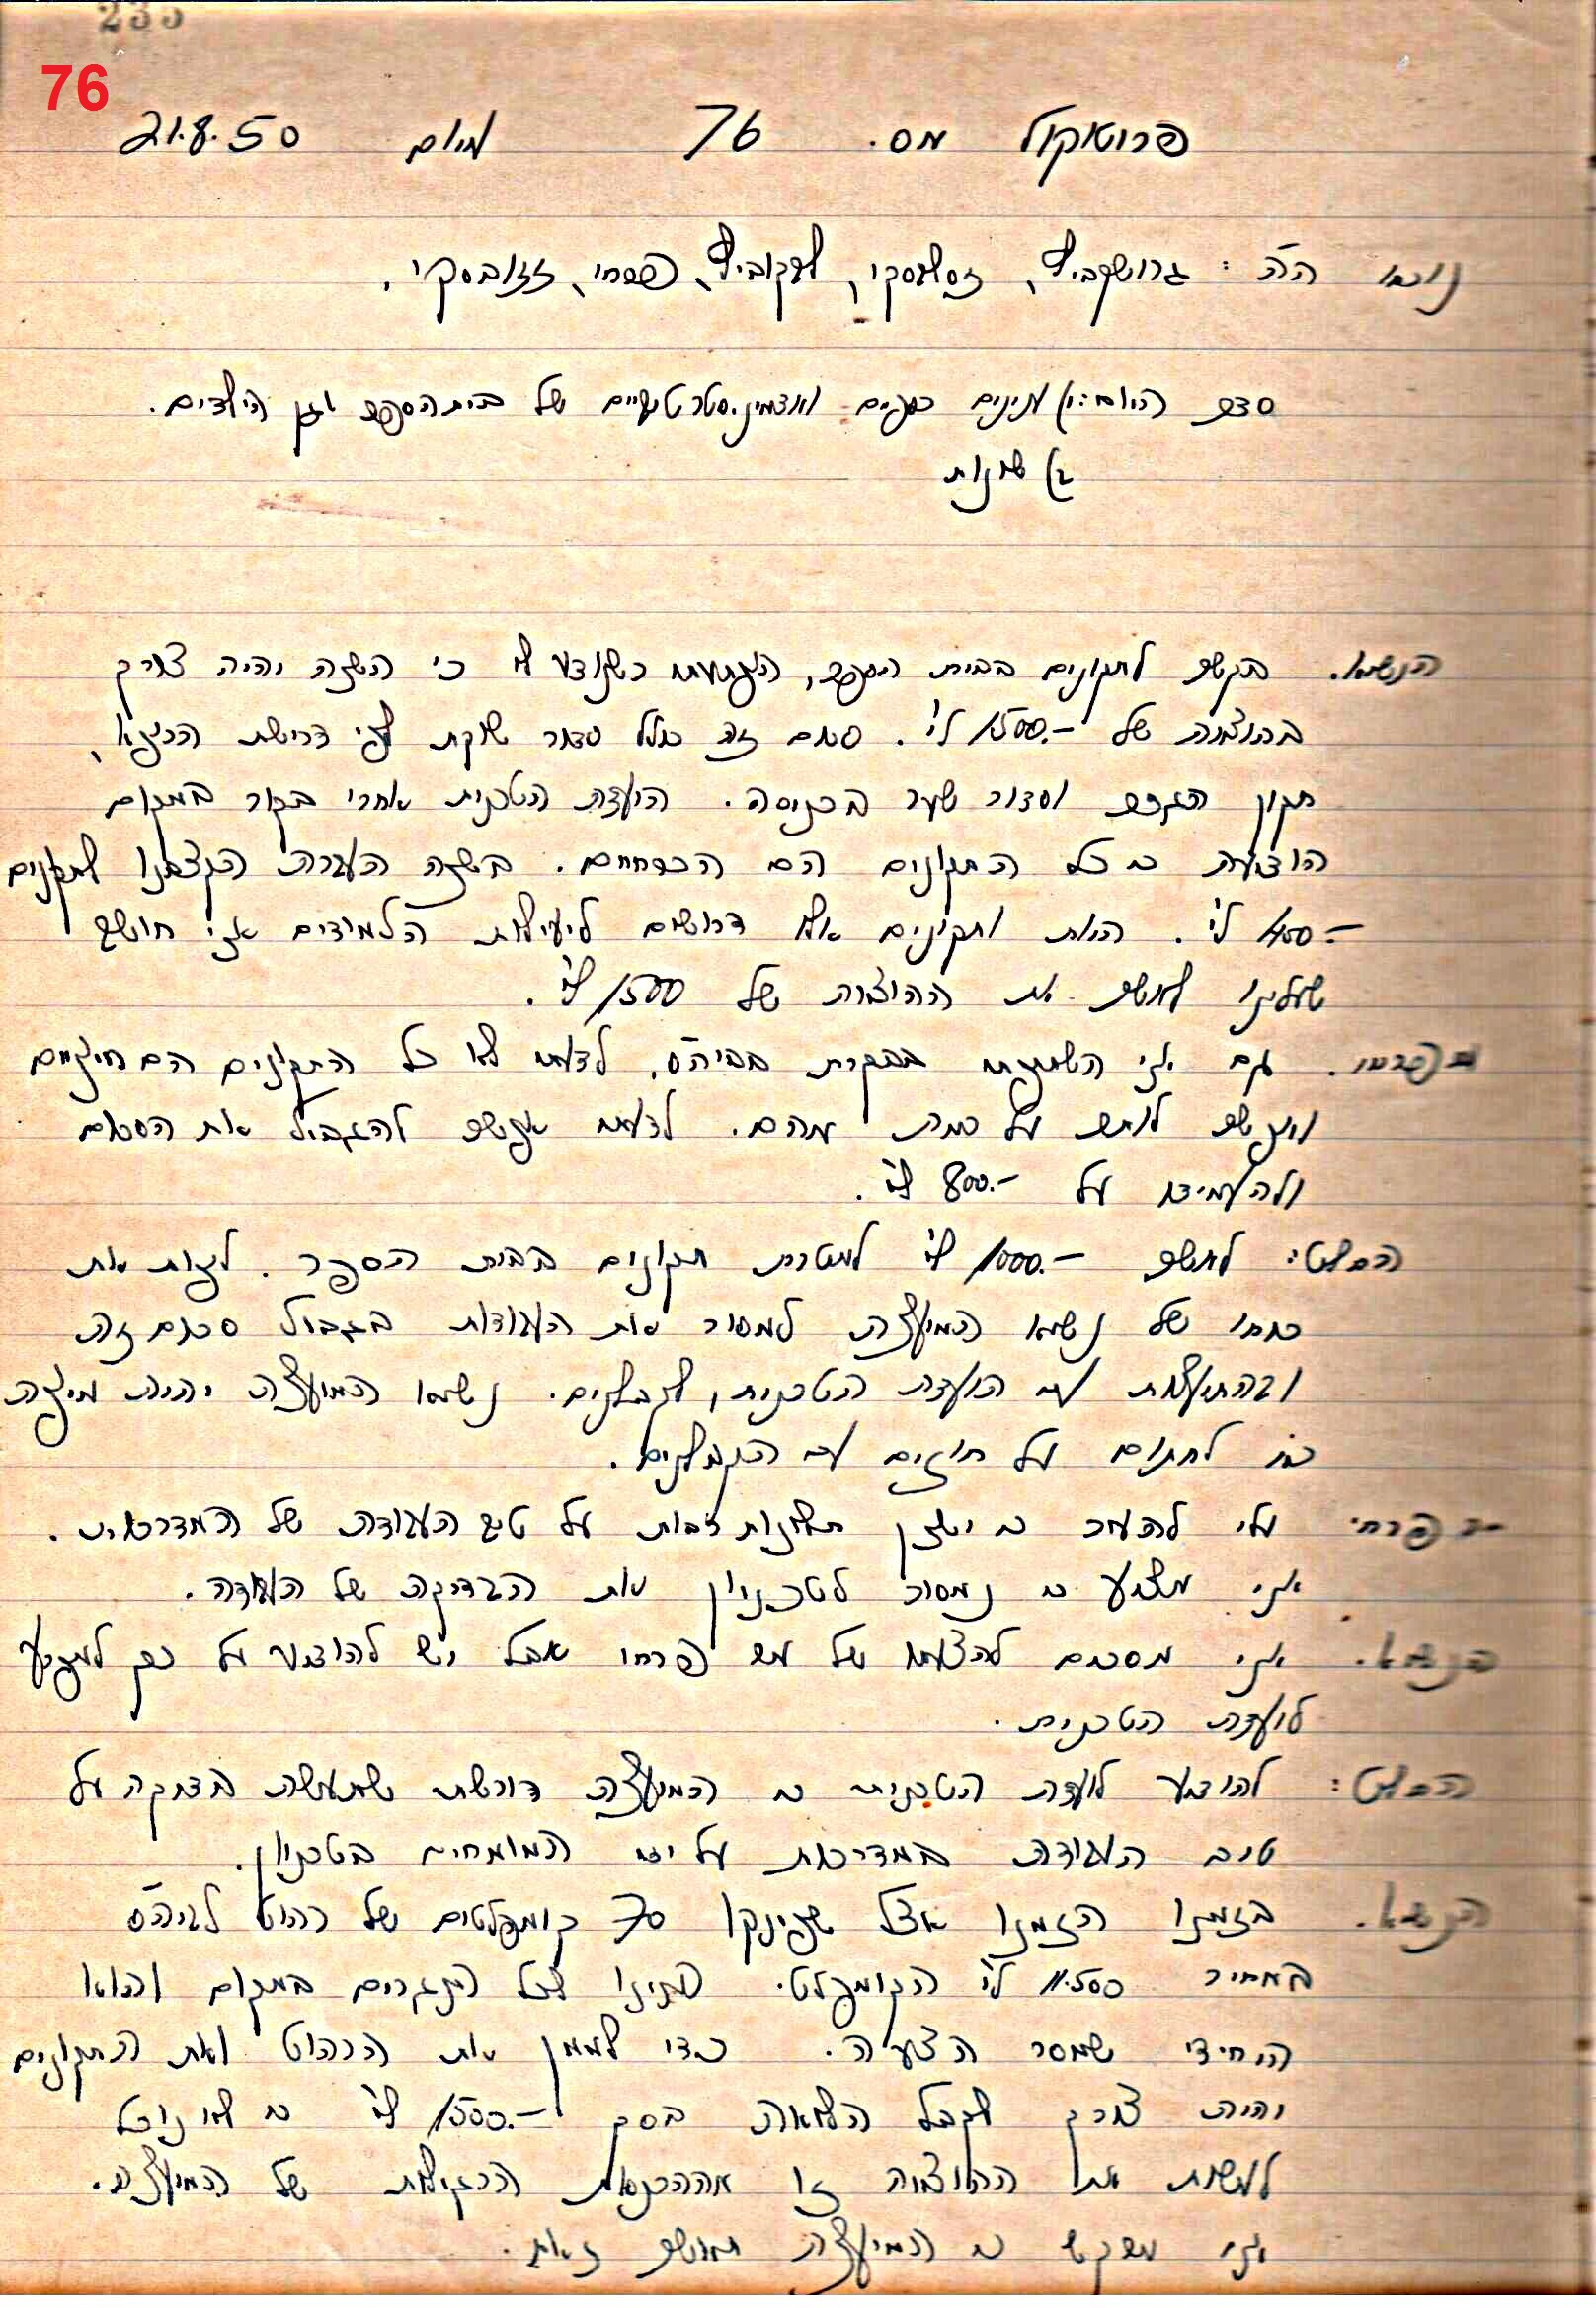 235
76
פרוטוקול מס. 76 מיום 21.8.50
נוכחו הה': גרושקביץ, זסלבסקי, לדקוביץ, פרחי,
סדר היום: 1) ענינים כספיים ואדמיניסטרטיביים של בית הספר וגן הילדים.
2) שונות
הנשיא. בקשר לתקונים בבית הספר, הופתעתי כשנודע לי כי השנה יהיה צורך
בהוצאה של 1500.- ל"י. סכום זה כולל סדור שוקת לפי דרישת הרופא,
תקון הגדר וסדור שער בכניסה. הועדה הטכנית אחרי בקור במקום
הודיעה כי כל התקונים הם הכרחיים. בשנה העברה הקצבנו לתקונים
400.- ל"י. היות ותקונים אלו דרושים ליעילות הלמודים אני חושב
שעלינו לאשר את ההוצאה של 1500 ל"י.
מר פרחי. גם אני השתתפתי בבקורת בביה"ס, לדעתי לא כל התקונים הם חיוניים
ואפשר לותר על כמה מהם. לדעתי אפשר להגביל את הסכום
ולהעמידו על 800.- ל"י.
הוחלט: לאשר 1000.- ל"י למטרת תקונים בבית הספר. לצוות את
כחו של נשיא המועצה למסור את העבודות בגבול סכום זה
ובהתיעצות עם הועדה הטכנית, לקבלנים. נשיא המועצה יהיה מיופה
כח לחתום על חוזים עם הקבלנים.
מר פרחי עלי להעיר כי ישנן תלונות רבות על טיב העבודה של המדרכות.
אני מציע כי נמסור לטכניון את הבדיקה של העבודה.
הנשיא. אני מסכים להצעתו של מר פרחי אבל יש להודיע על כך למפרע
לועדה הטכנית.
הוחלט: להודיע לועדה הטכנית כי המועצה דורשת שתעשה בדיקה על
טיב העבודה במדרכות על ידי המומחים בטכניון.
הנשיא. בזמנו הזמנו אצל שפינקו 70 קומפלטים של רהוט לביה"ס
במחיר 11.500 ל"י הקומפלט. פנינו לכל הנגרים במקום והוא
היחידי שמסר הצעה. כדי לממן את הרהוט ואת התקונים
יהיה צורך לקבל הלואה בסך 1500.- ל"י כי לא נוכל
לעשות את ההוצאה זו מההכנסות הרגילות של המועצה.
אני מבקש כי המועצה תאשר זאת.